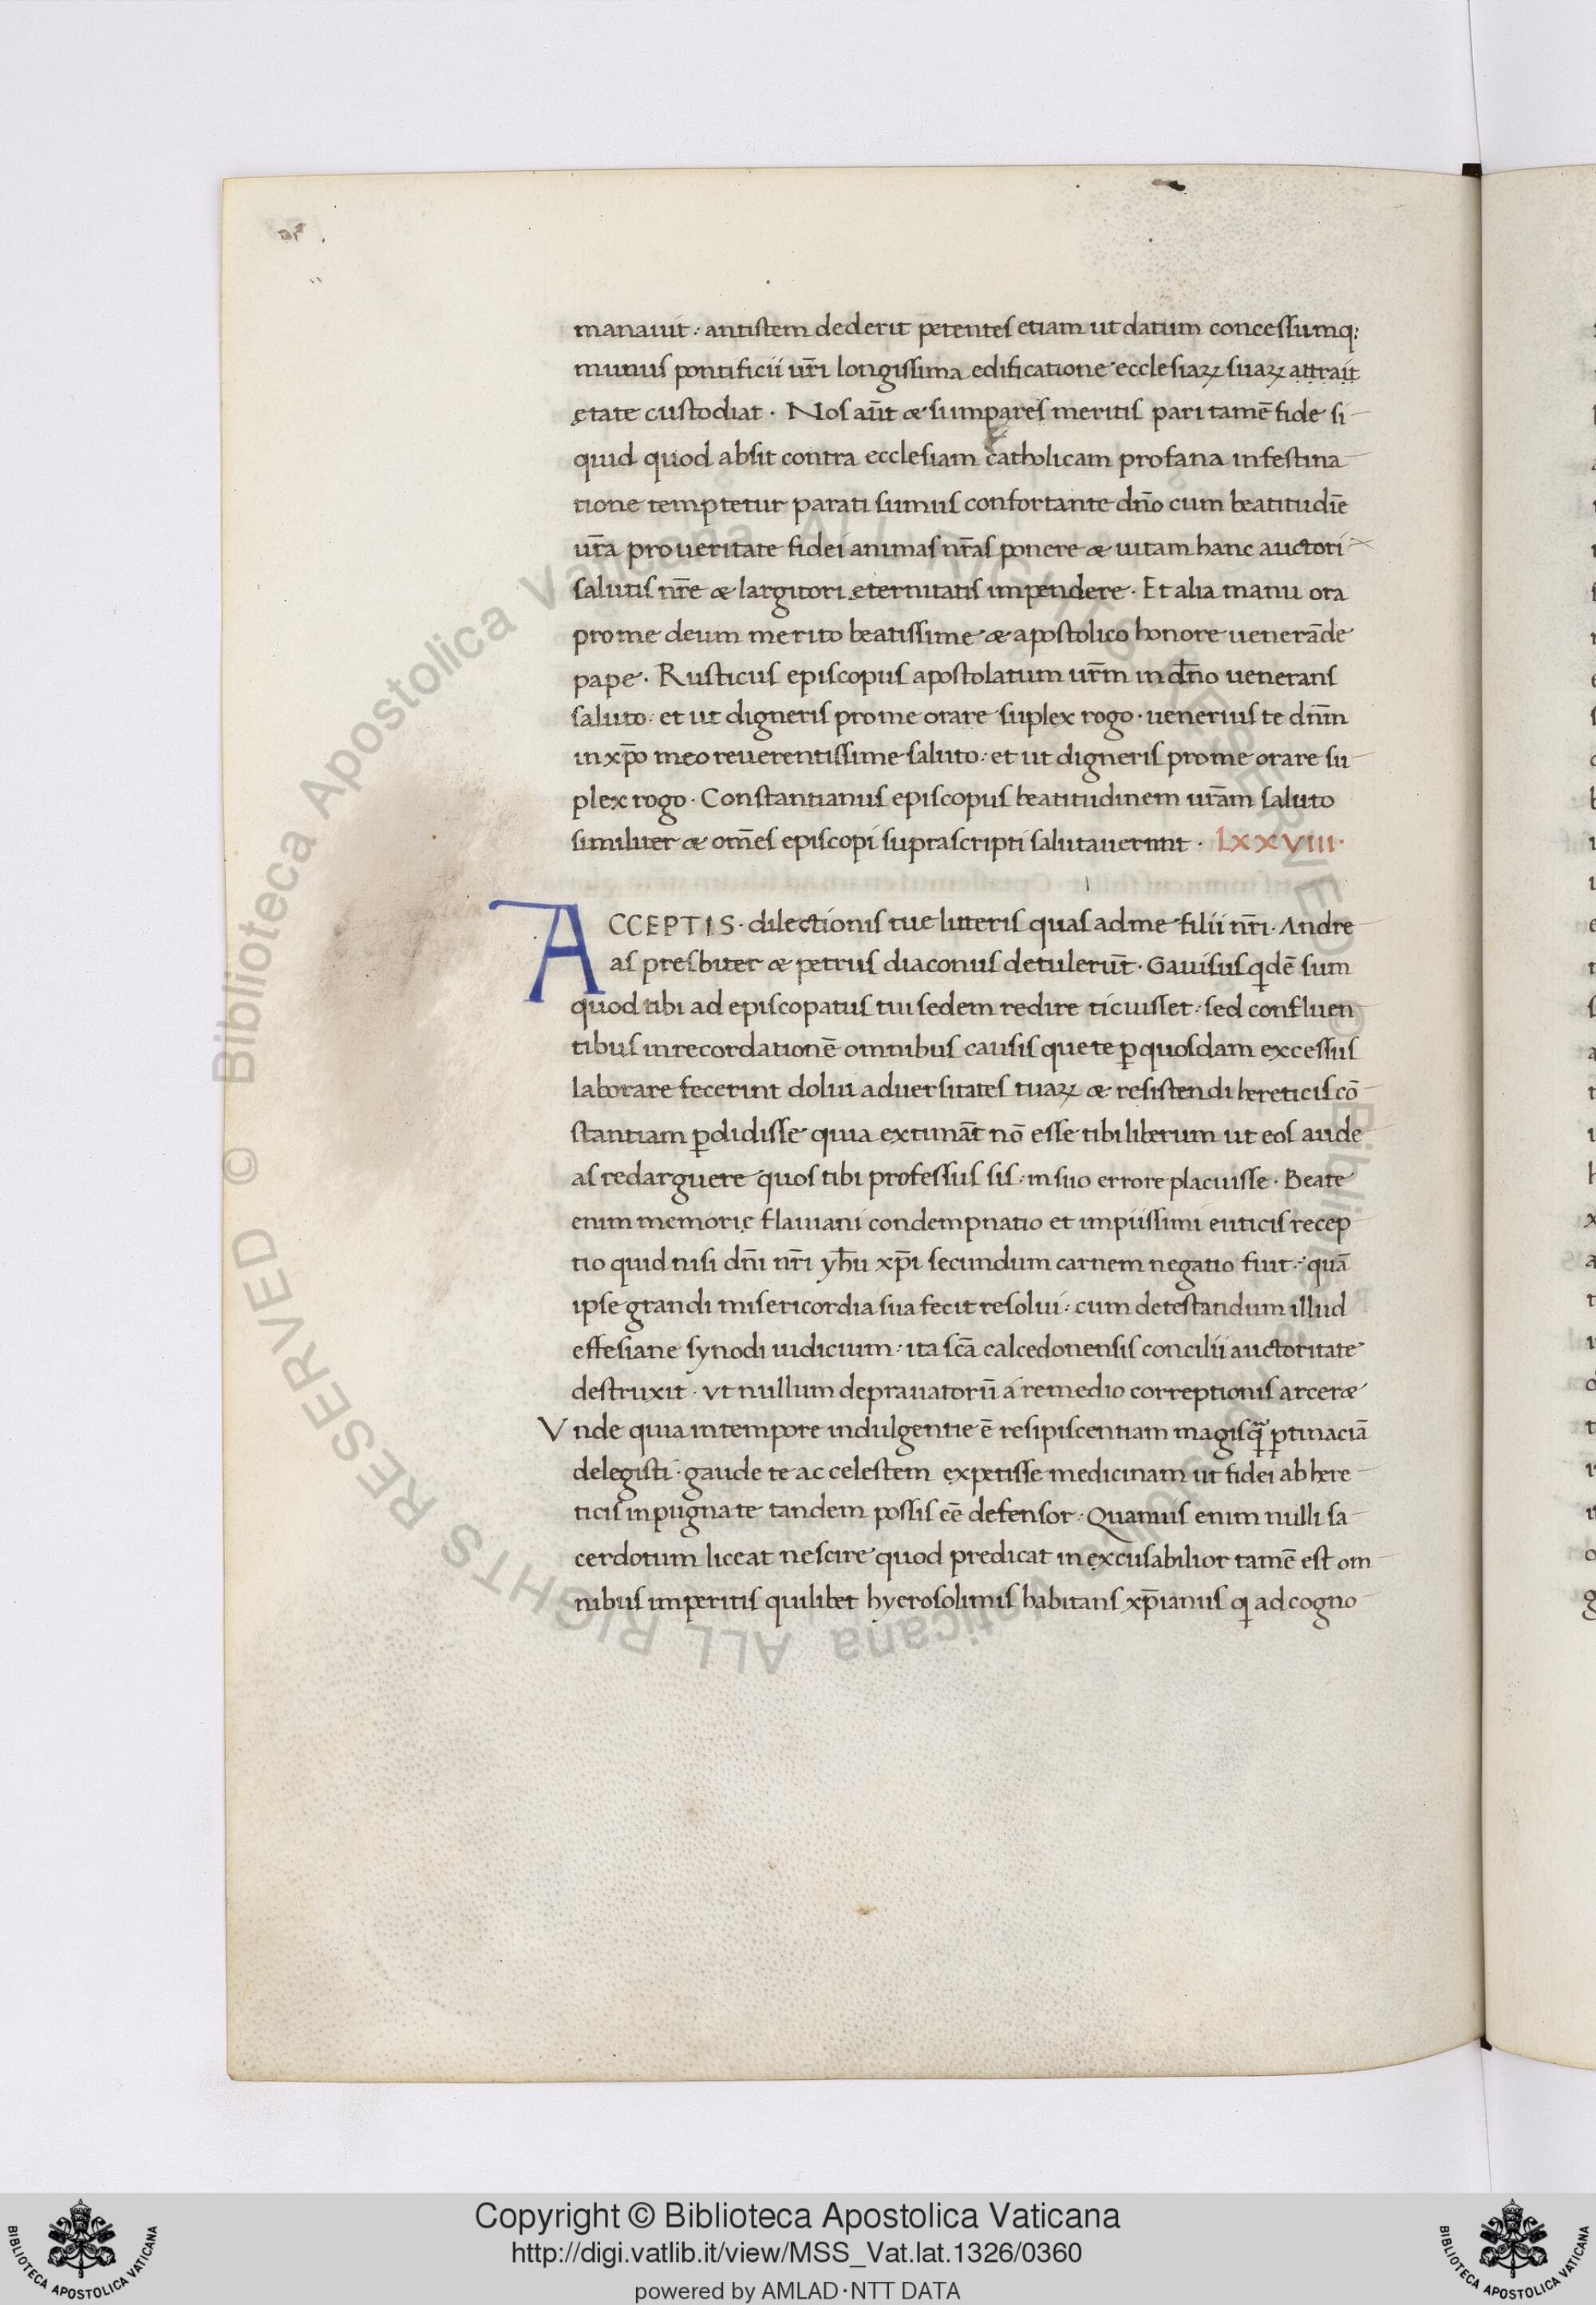 manauit: antistem dederit petentes etiam ut datum concessumq;
munus pontificii ur̄i longissima edificatione ecclesiaꝝ suaꝝ attrait
ętate custodiat. Nos aūt & si impares meritis pari tamē fide si
quid quod absit contra ecclesiam catholicam profana infestina
tione temptetur parati sumus confortante dn̄o cum beatitudīe
ur̄a pro ueritate fidei animas nr̄as ponere & uitam hanc auctori
salutis nr̄e & largitori ęternitatis impendere. Et alia manu ora
pro me deum merito beatissime & apostolico honore uenerāde
pape. Rusticus episcopus apostolatum ur̄m in dn̄o uenerans
saluto: et ut digneris pro me orare suplex rogo. uenerius te dn̄m
in xp̄o meo reuerentissime saluto: et ut digneris pro me orare su
plex rogo. Constantianus episcopus beatitudinem ur̄am saluto
similiter & om̄es episcopi suprascripti salutauerunt. LXXVIII.
ACCEPTIS. dilectionis tue litteris quas ad me filii nr̄i. Andre
as presbiter & petrus diaconus detulerūt. Gauisus qdē sum
quod tibi ad episcopatus tui sedem redire ticuisset: sed confluen
tibus in recordationē omnibus causis que te ꝑ quosdam excessus
laborare fecerint dolui aduersitates tuaꝝ & resistendi hereticis cō
stantiam ꝑdidisse quia extimāt nō esse tibi liberum ut eos aude
as redarguere quos tibi professus sis: in suo errore placuisse. Beate
enim memorię flauiani condempnatio et impiissimi euticis recep
tio quid nisi dn̄i nr̄i yh̄u xp̄i secundum carnem negatio fuit: quā
ipse grandi misericordia sua fecit resolui: cum detestandum illud
effesiane synodi iudicium: ita sc̄a calcedonensis concilii auctoritate
destruxit. vt nullum deprauatorū a remedio correptionis arcer&
Vnde quia in tempore indulgentie ē resipiscentiam magis q̄ ꝑtinaciā
delegisti. gaude te ac celestem expetisse medicinam ut fidei ab here
ticis inpugnate tandem possis eē defensor. Quamuis enim nulli sa
cerdotum liceat nescire quod predicat inexcusabilior tamē est om
nibus imperitis quilibet hyerosolimis habitans xp̄ianus q ad cogno
Copyright © Biblioteca Apostolica Vaticana
http://digi.vatlib.it/view/MSS_Vat.lat.1326/0360
powered by AMLAD·NTT DATA